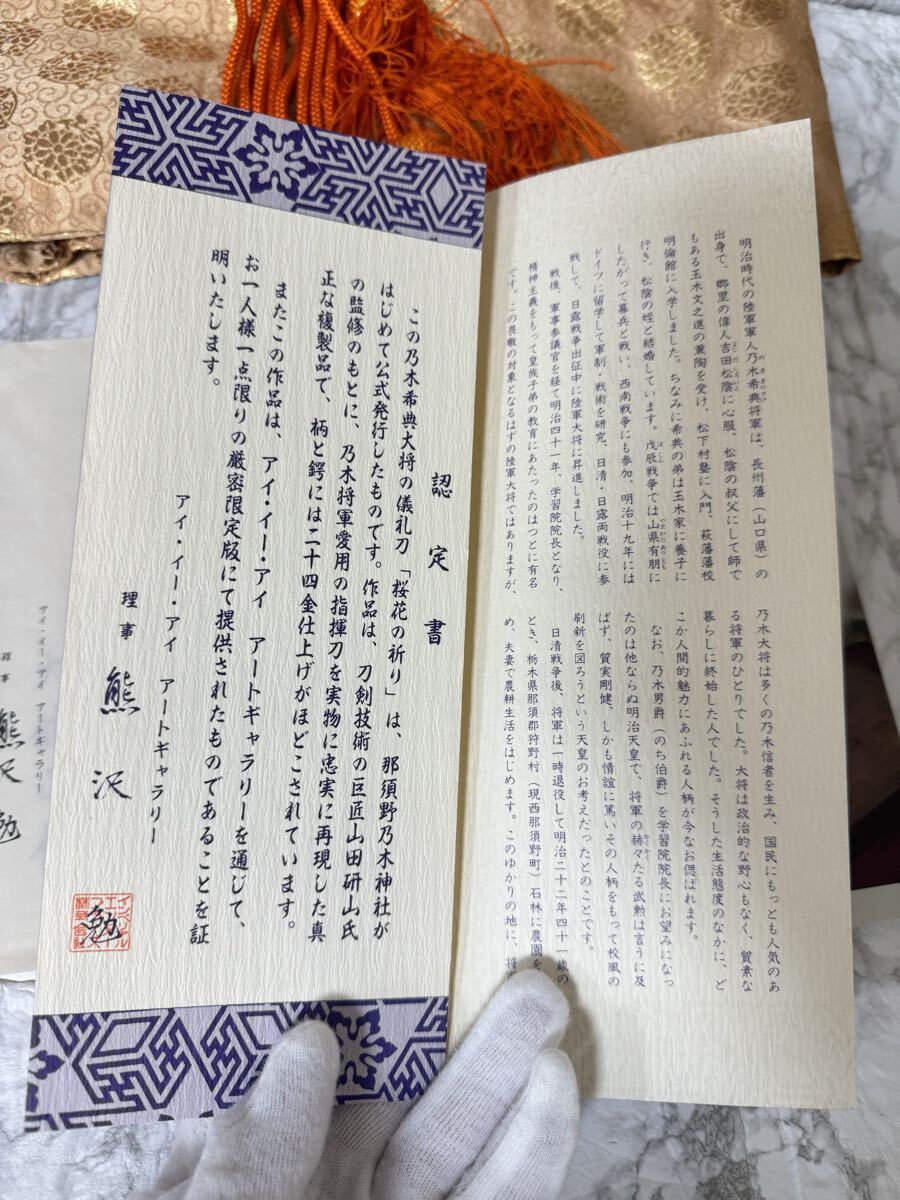 認定書
この乃木希典大将の儀礼刀「桜花の祈り」は、那須野乃木神社が
はじめて公式発行したものです。作品は、刀剣技術の巨匠山田研山氏
の監修のもとに、乃木将軍愛用の指揮刀を実物に忠実に再現した真
正な複製品で、柄と鍔には二十四金仕上げがほどこされています。
またこの作品は、アイ・イー・アイ アートギャラリーを通じて、
お一人様一点限りの厳密限定版にて提供されたものであることを証
明いたします。
アイ・イー・アイ アートギャラリー
理事 熊沢 勉
明治時代の陸軍軍人乃木希典将軍は、長州藩（山口県）の
出身で、郷里の偉人吉田松陰に心服、松陰の叔父にして師で
もある玉木文之進の薫陶を受け、松下村塾に入門、萩藩藩校
明倫館に入学しました。ちなみに希典の弟は玉木家に養子に
行き、松陰の姪と結婚しています。戊辰戦争では山県有朋に
したがって幕兵と戦い、西南戦争にも参加、明治十九年には
ドイツに留学して軍制・戦術を研究、日清・日露両戦役に参
戦して、日露戦争出征中に陸軍大将に昇進しました。
戦後、軍事参議官を経て明治四十一年、学習院院長となり、
精神主義をもって皇族子弟の教育にあたったのはつとに有名
です。この畏敬の対象となるはずの陸軍大将ではありますが、
乃木大将は多くの乃木信者を生み、国民にもっとも人気のあ
る将軍のひとりでした。大将は政治的な野心もなく、質素な
暮らしに終始した人でした。そうした生活態度のなかに、ど
こか人間的魅力にあふれる人柄が今なお偲ばれます。
なお、乃木男爵（のち伯爵）を学習院院長にお望みになっ
たのは他ならぬ明治天皇で、将軍の赫々たる武勲は言うに及
ばず、質実剛健、しかも情誼に篤いその人柄をもって校風の
刷新を図ろうという天皇のお考えだったとのことです。
日清戦争後、将軍は一時退役して明治二十二年四十一歳の
とき、栃木県那須郡狩野村（現西那須野町）石林に農園を
め、夫妻で農耕生活をはじめます。このゆかりの地に、将
アイ・イー・アイ アートギャラリー
理事 熊沢 勉